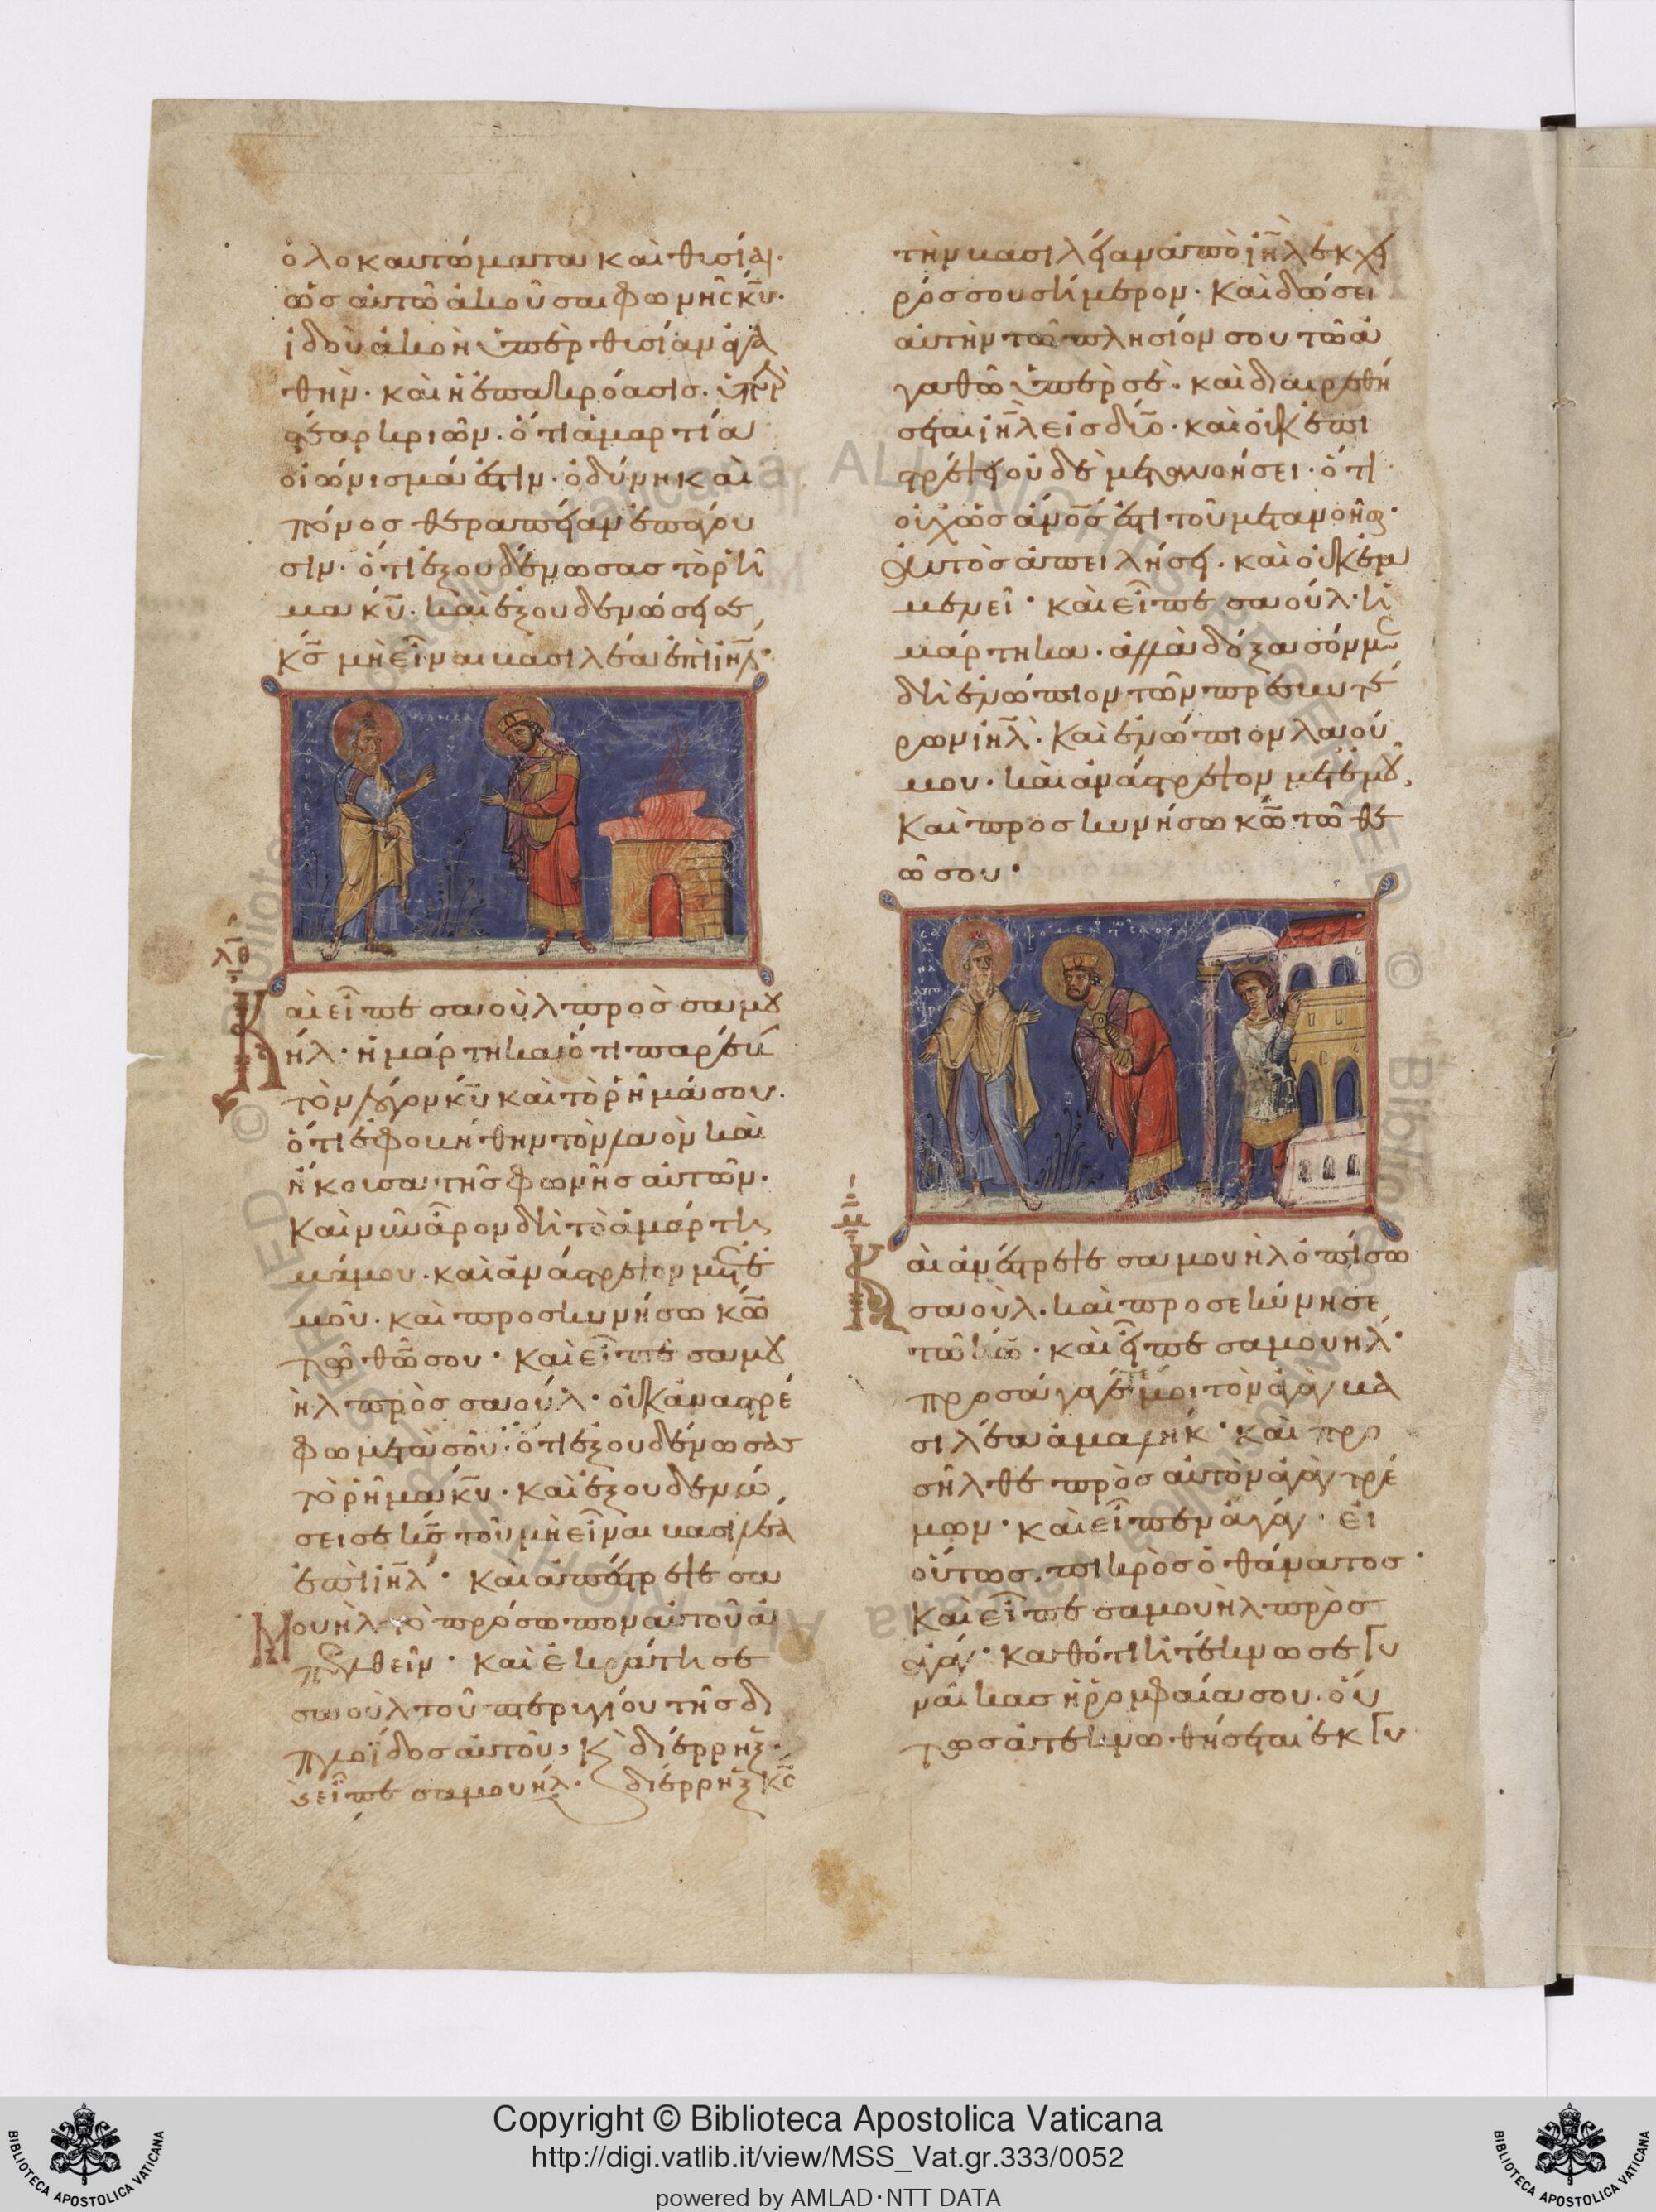 ὁλοκαυτώματα καὶ θυσίαι·
ὡς αὐτῶ ἀκοῦσαι φωνῆς κ̅υ̅·
ἰδοὺ ἀκοὴ ὑπὲρ θυσίαν ἀγα
θὴν· καὶ ἡ ἐπακρόασις· ὑπὲρ
στέαρ κριῶν· ὅτι ἁμαρτία
οἰώνισμά ἐστιν· ὀδύνη καὶ
πόνος θεραπείαν ἐπάγου
σιν· ὅτι ἐξουδένωσας τὸ ῥῆ
μα κ̅υ̅· καὶ ἐξουδενώσει σε
κ̅ς̅ μὴ εἶναι βασιλέα ἐπὶ ι̅η̅λ̅·
λθ
Καὶ εἶπε σαοὺλ πρὸς σαμου
ήλ· ἡμάρτηκα ὅτι παρέβην
τὸν λόγον κ̅υ̅ καὶ τὸ ῥῆμά σου·
ὅτι ἐφοβήθην τὸν λαὸν καὶ
ἤκουσα τῆς φωνῆς αὐτῶν·
Καὶ νῦν ἆρον δὴ τὸ ἁμάρτη
μά μου· καὶ ἀνάστρεψον μετ ἐ
μοῦ· καὶ προσκυνήσω κ̅ω̅
τῶ θ̅ω̅ σου· Καὶ εἶπε σαμου
ὴλ πρὸς σαούλ· οὐκ ἀναστρέ
φω μετὰ σοῦ· ὅτι ἐξουδένωσας
τὸ ῥῆμα κ̅υ̅· καὶ ἐξουδενώ
σει σε κ̅ς̅ τοῦ μὴ εἶναι βασιλέα
ἐπὶ ι̅η̅λ̅· Καὶ ἀπέστρεψε σα
Μουὴλ τὸ πρόσωπον αὐτοῦ ἀ
πελθεῖν· Καὶ ἐκράτησε
σαοὺλ τοῦ πτερυγίου τῆς δι
πλοΐδος αὐτοῦ, κ̀ διέρρηξ·
εἶπε σαμουήλ· διέρρηξ κ̅ς̅
τὴν βασιλείαν ἀπὸ ι̅η̅λ̅ ἐκ χει
ρός σου σήμερον· Καὶ δώσει
αὐτὴν τῶ πλησίον σου τῶ ἀ
γαθῶ ὑπὲρ σὲ· καὶ διαιρεθή
σεται ι̅η̅λ̅ εἰς δύο· καὶ οὐκ ἐπι
στρέψει οὐδὲ μετανοήσει· ὅτι
οὐχ ὡς ἄνο̅ς̅ ἐστι τοῦ μετανοῆσ·
Αὐτὸς ἀπειλήσει· καὶ οὐκ ἐμ
μενεῖ· καὶ εἶπε σαούλ· ἡ
μάρτηκα· ἀλλὰ δόξασόν με
δὴ ἐνώπιον τῶν πρεσβυτέ
ρων ι̅η̅λ̅· Καὶ ἐνώπιον λαοῦ
μου· καὶ ἀνάστρεψον μετ ἐμοῦ,
Καὶ προσκυνήσω κ̅ω̅ τῶ θε
ῶ σου·
μ
Καὶ ἀνέστρεψε σαμουὴλ ὀπίσω
σαούλ· καὶ προσεκύνησε
τῶ κ̅ω̅· καὶ εἶπε σαμουήλ·
προσαγάγετέ μοι τὸν ἀγὰγ βα
σιλέα ἀμαλήκ· Καὶ προ
σῆλθε πρὸς αὐτὸν ἀγὰγ τρέ
μων· καὶ εἶπεν ἀγάγ· εἰ
οὕτως πικρὸς ὁ θάνατος·
Καὶ εἶπε σαμουὴλ πρὸς
ἀγάγ· Καθότι ἠτέκνωσε γυ
ναῖκας ἡ ῥομφαία σου· οὕ
τως ἀτεκνωθήσεται ἐκ γυ
Copyright © Biblioteca Apostolica Vaticana
http://digi.vatlib.it/view/MSS_Vat.gr.333/0052
powered by AMLAD·NTT DATA
BIBLIOTECA APOSTOLICA VATICANA
BIBLIOTECA APOSTOLICA VATICANA